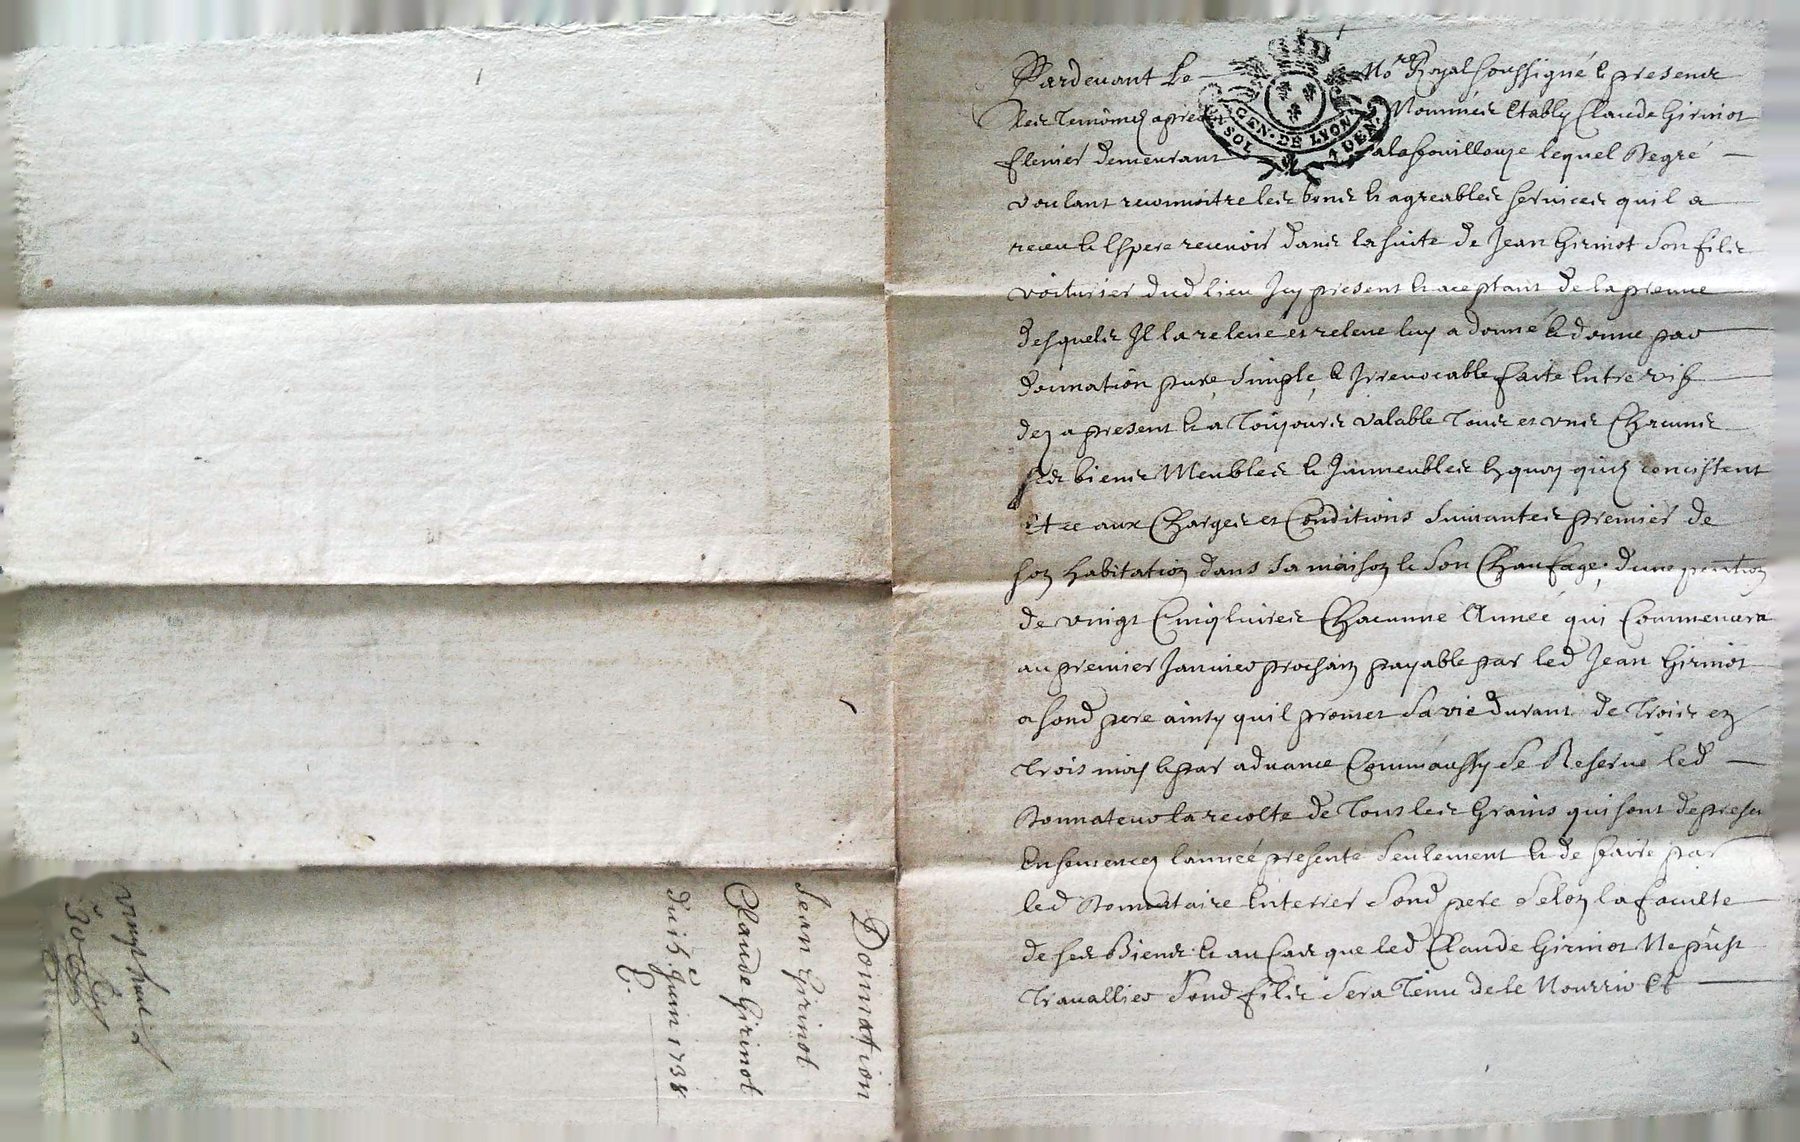 Pardevant Le No.re Royal soussigné & presence
des temoins apres Nommés Estably Claude Girinot
demeurant a lafouillouze lequel de gré
voulant reconnoitre les bons & agreables services quil a
receu & Espere recevoir dans la suite de Jean Girinot son fils
voiturier dud lieu Icy present & aceptant de la preuve
desquels Il la releve et releve luy a donné & donne par
donnation pure, simple, & Irrevocable faite Entre vifs
dez a present & a Toujours valable Tous et uns Chacuns
ses biens Meubles & Immeubles En quoy quilz concistent
Et ce aux Charges et Conditions suivantes premier de
son habitation dans sa maison & son Chaufage, dune pention
de vingt Cinq livres Chacunne Année qui Commencera
au premier Janvier prochain payable par led Jean Girinot
a sond pere ainsy quil promet sa vie durant de Trois en
Trois mois & par advance Comm'aussy se Reserve led
Donnateur la recolte de Tous les Grains qui sont de present
Ensemencez lanneé presente seulement & de faire par
led Donnataire Enterrer sond pere selon la faculte
de ses Biens & au Cas que led Claude Girinot Ne pust
Travallier sond fils sera Tenu de le Nourrir Et
GEN. DE LYON
SOL 4 DEN.
Donnation
Jean Girinot
Claude Girinot
du 15.e Juin 1738
vingt huit